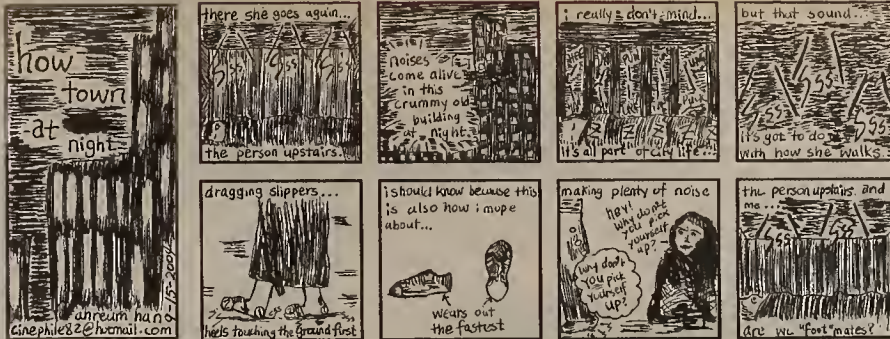 how
town
-at
night
ahreum han
cinephile82@hotmail.com
there she goes again...
sss sss sss
the person upstairs..
noises
come alive
in this
crummy old
building
at night.
i really don't mind...
it's all part of city life...
but that sound...
sss
sss
sss
it's got to do
with how she walks..
dragging slippers...
heels touching the ground first
i should know because this
is also how i mope
about...
wears out
the fastest
making plenty of noise
hey!
why don't
you pick
yourself
up?
why don't
you pick
yourself
up?
the person upstairs and
me...
sss sss
are we "foot"mates?